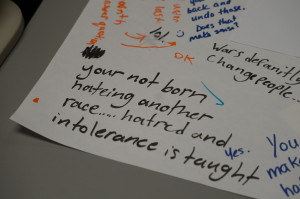 back and
undo those.
Does that
make sense?
lol
OK
Wars definitly
Change people...
your not born
hateing another
race.... hatred and
intolerance is taught
Yes.
You
make